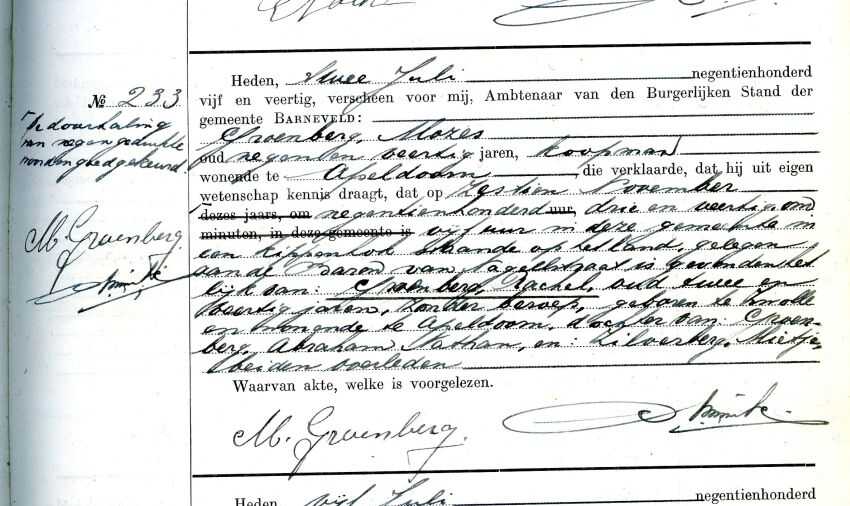 Heden, twee Juli negentienhonderd
vijf en veertig, verscheen voor mij, Ambtenaar van den Burgerlijken Stand der
gemeente BARNEVELD:
Groenberg, Mozes
oud negen en veertig jaren, koopman
wonende te Apeldoorn die verklaarde, dat hij uit eigen
wetenschap kennis draagt, dat op zestien November
dezes jaars, om negentienhonderd uur, drie en veertig, om
minuten, in deze gemeente is vijf uur in deze gemeente in
een kippenhok staande op het land, gelegen
aan de Baron van Nagellstraat is gevonden het
lijk van: Groenberg, Rachel, oud twee en
veertig jaren, zonder beroep, geboren te Zwolle
en wonende te Apeldoorn, dochter van: Groen-
berg, Abraham Nathan, en: Zilverberg, Mietje,
beiden overleden
Waarvan akte, welke is voorgelezen.
M. Groenberg.
No 233
De doorhaling
van negen gedrukte
woorden goedgekeurd!
M. Groenberg
Heden, vijf Juli negentienhonderd